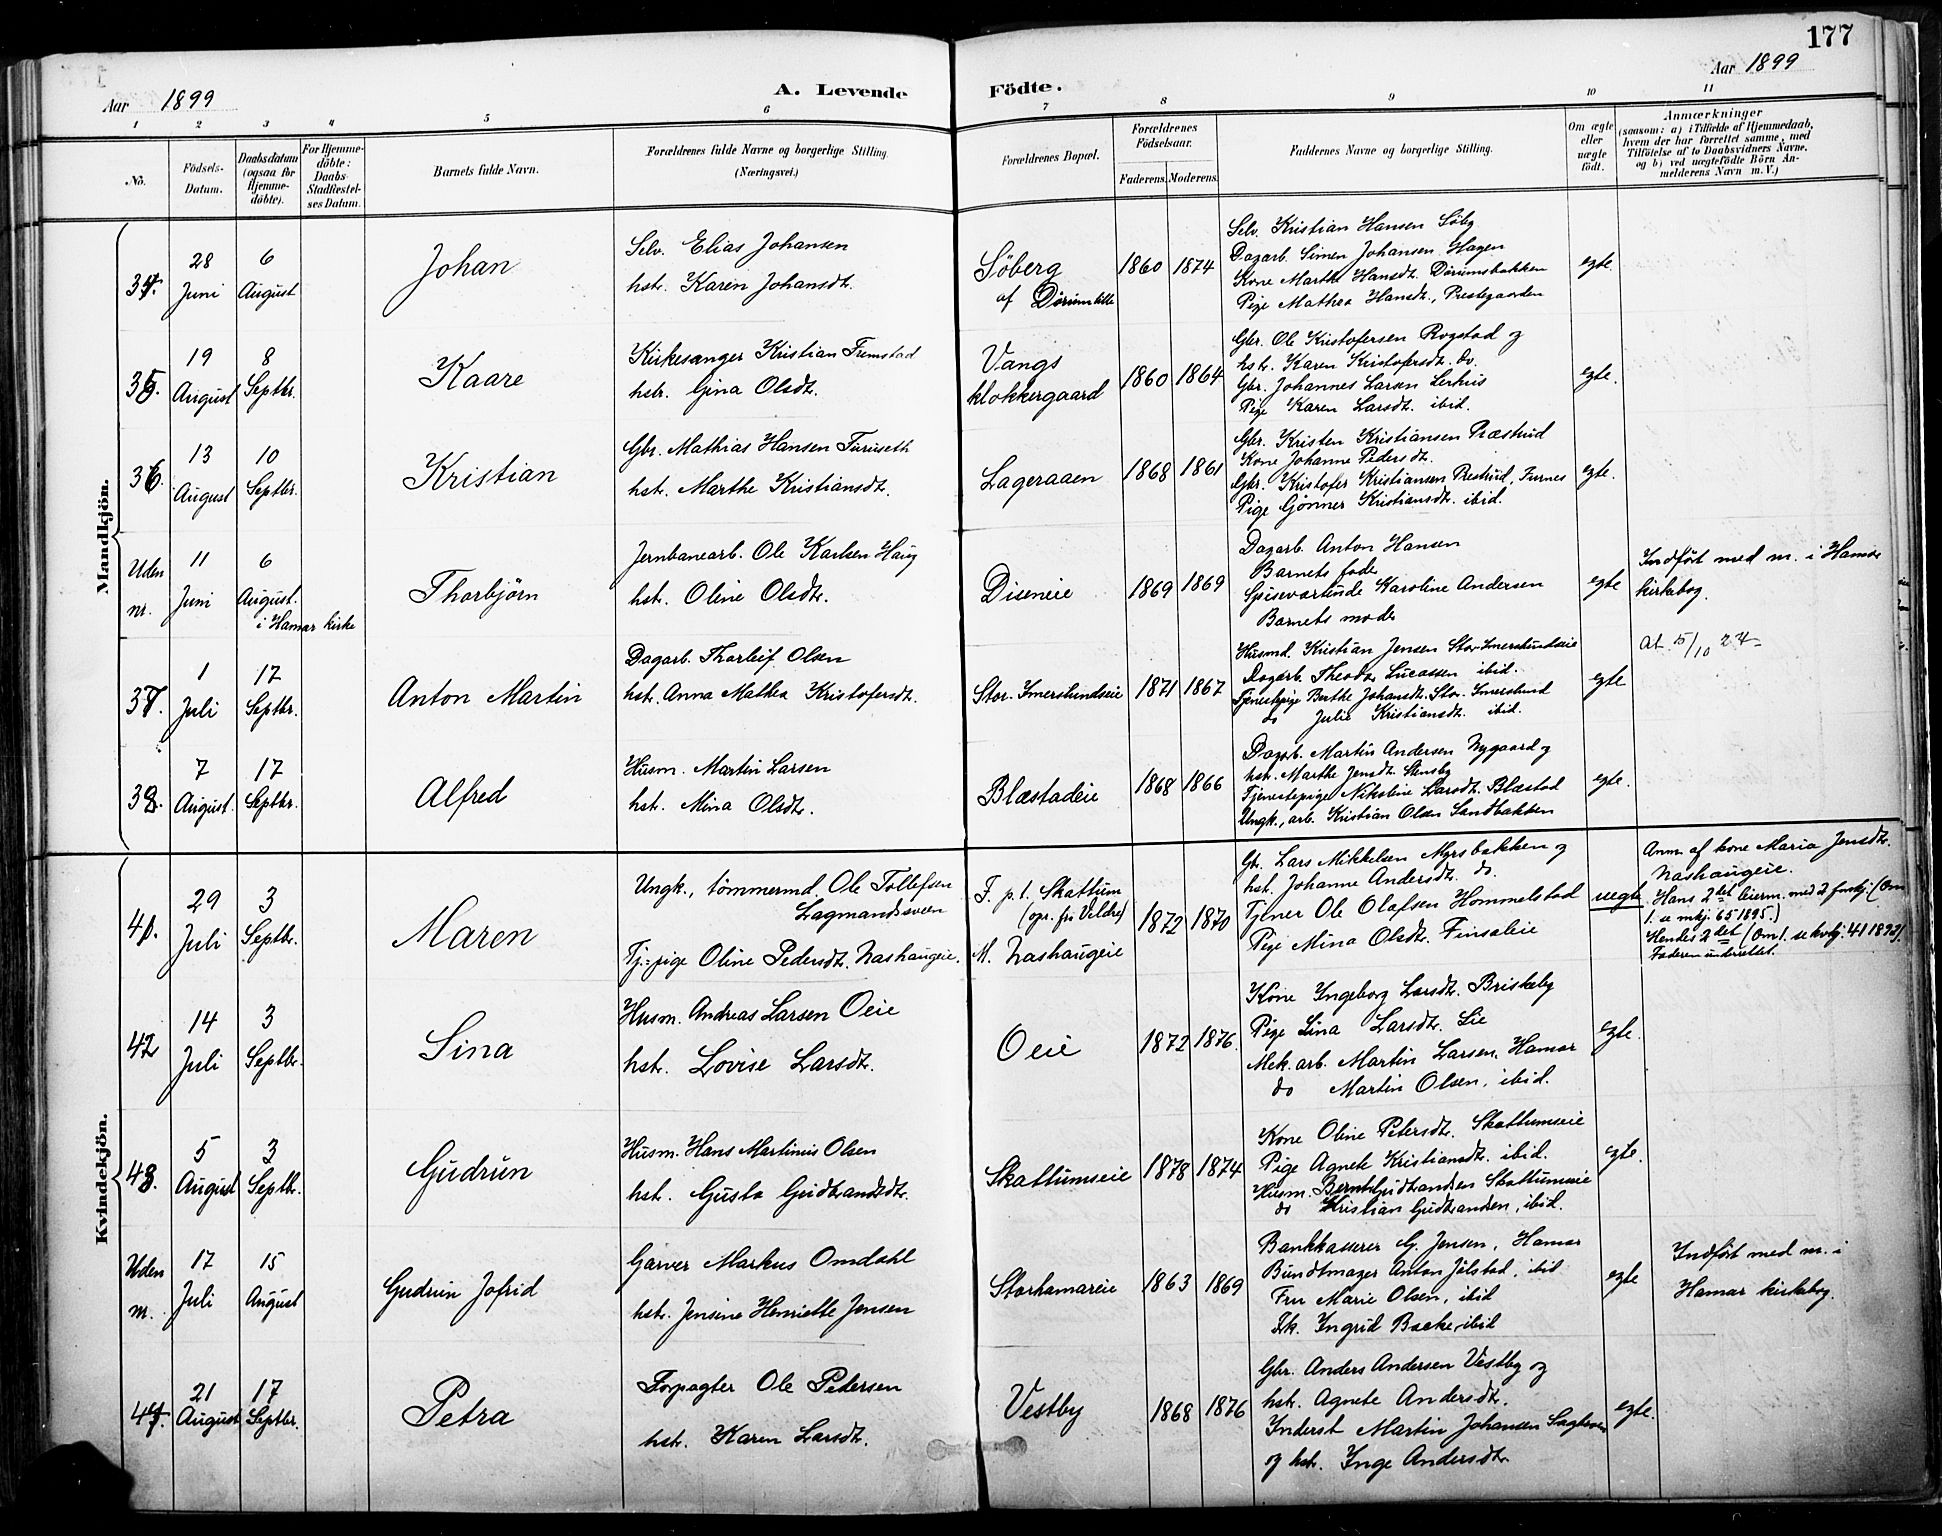 177
Aar 1899
A. Levende Fødte.
Aar 1899
1 2 3 4 5 6 7 8 9 10 11
No.
Fødsels-Datum.
Daabsdatum (ogsaa for Hjemme-døbte).
For Hjemme-døbte: Daabs-Stadfæstel-ses Datum.
Barnets fulde Navn.
Forældrenes fulde Navne og borgerlige Stilling.
(Næringsvei.)
Forældrenes Bopæl.
Forældrenes Fødselsaar.
Faderens. Moderens.
Faddernes Navne og borgerlige Stilling.
Om ægte eller uægte født.
Anmærkninger
(saasom: a) i Tilfælde af Hjemmedaab,
hvem der har forrettet samme, med
Tilføielse af to Daabsvidners Navne,
og b) ved uægtefødte Børn An-
melderens Navn m. V.)
Mandkjön.
34.
28 Juni
6 August
Johan
Selv. Elias Johansen
hstr. Karen Johansdt.
Söberg
af Dörumlille
1860 1874
Selv. Kristian Hansen Söby
Dagarb. Simen Johansen Hagen
Kone Marthe Hansdt. Dörumsbakken
Pige Mathea Hansdt., Prestegaarden
egte.
35.
19 August
8 Septbr.
Kaare
Kirkesanger Kristian Fremstad
hstr. Gina Olsdt.
Vangs
klokkergaard
1860 1864
Gbr. Ole Kristofersen Rogstad og
hst. Karen Kristofersdt. do.
Gbr. Johannes Larsen Lerhus
Pige Karen Larsdt. ibid.
egte.
36.
13 August
10 Septbr.
Kristian
Gbr. Mathias Hansen Furuseth
hst. Marthe Kristiansdt.
Lageraaen
1868 1861
Gbr. Kristen Kristiansen Præstrud
Kone Johanne Pedersdt.
Gbr. Kristofer Kristiansen Prestrud, Furnes
Pige Gönner Kristiansdt. ibid.
egte.
Uden nr.
11 Juni
6 August.
i Hamar kirke
Thorbjörn
Jernbanearb. Ole Karlsen Haug
hst. Oline Olsdt.
Diseneie
1869 1869
Dagarb. Anton Hansen
Barnets fader
Spiseværtinde Karoline Andersen
Barnets moder
egte
Indfört med nr. i Hamar
kirkebog.
37.
1 Juli
17 Septbr.
Anton Martin
Dagarb. Thorleif Olsen
hst. Anna Mathea Kristofersdt.
Stor. Imerslundseie
1871 1867
Husmd. Kristian Jensen Stor-Imerslundseie
Dagarb. Theodor Lucassen ibid.
Tjenestepige Berthe Johansdt. Stor. Imerslund
do Julie Kristiansdt. ibid.
egte
at. 5/10 24
38.
7 August.
17 Septbr.
Alfred
Husm. Martin Larsen
hst. Mina Olsdt.
Blæstadeie
1868 1866
Dagarb. Martin Andersen Nygaard og
hst. Marthe Jensdt. Stensby
Tjenestepige Nikoline Larsdt. Blæstad
Ungk., arb. Kristian Olsen Sandbakken
egte.
Kvindekjön.
41.
29 Juli
3 Septbr.
Maren
Ungk., tömmermd. Ole Tollefsen
Lagmandsveen
Tj.-pige Oline Pedersdt. Nashaugeie.
F. p. t. Skattum
(opr. fr. Veldre)
M. Nashaugeie
1872 1870
Gbr. Lars Mikkelsen Myrsbakken og
hst. Johanne Andersdt. do.
Tjener Ole Olafsen Hommelstad
Pige Mina Olsdt. Finsaleie
uegte
Anm. af kone Maria Jensdt.
Nashaugeie.
Hans 2det leierm. med 2 fruktj. (Om
1. se mkj. 65 1895.)
Hendes 2det (Om 1. se kvkj. 41 1892).
Faderen underrettet.
42
14 Juli
3 Septbr.
Sina
Husm. Andreas Larsen Oeie
hst. Lovise Larsdt.
Oeie
1872 1876.
Kone Ingeborg Larsdt. Briskeby
Pige Lina Larsdt. Lie
Mek. arb. Martin Larsen, Hamar
do Martin Olsen, ibid.
egte.
43.
5 August
3 Septbr.
Gudrun
Husm. Hans Martinius Olsen
hst. Gusta Gudbrandsdt.
Skattumseie
1878 1874
Kone Oline Petersdt. Skattumseie
Pige Agnete Kristiansdt. ibid.
Husm. Bernt Gudbrandsen Skattumseie
do Kristian Gudbrandsen, ibid.
egte.
Uden nr.
17 Juli
15 August
Gudrun Jofrid
Garver Markus Omdahl
hst. Jensine Henriette Jensen
Storhamareie
1863 1869
Bankkasserer G. Jensen, Hamar
Bundtmager Anton Jölstad, ibid
Fru Marie Olsen, ibid
Frk. Ingrid Bache, ibid
egte
Indfört med nr. i
Hamar kirkebog.
44.
21 August
17 Septbr.
Petra
Forpagter Ole Petersen
hst. Karen Larsdt.
Vestby
1868 1876
Gbr. Anders Andersen Vestby og
hst. Agnete Andersdt.
Inderst Martin Johansen
og hst. Inge Andersdt.
egte.